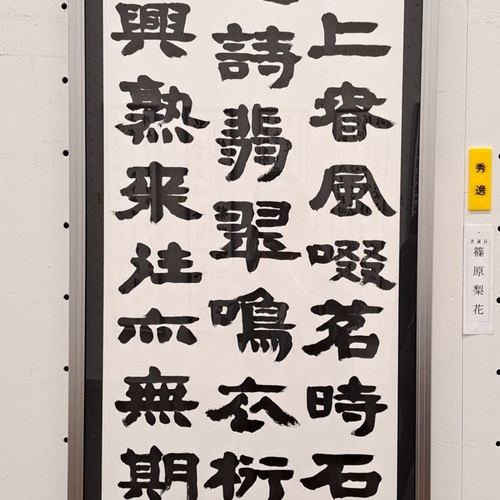 上春風啜茗時石
詩翡翠鳴衣桁
興熟来往亦無期
秀逸
篠原梨花